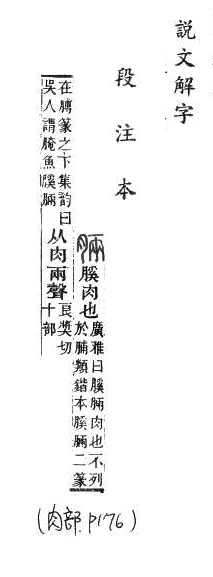 說文解字
段注本
脼 膎肉也 廣雅曰膎脼肉也不列
於脯類鍇本膎脼二篆
在膊篆之下集韵曰
吳人謂腌魚膎脼
从肉兩聲 良奬切
十部
(肉部 P176)